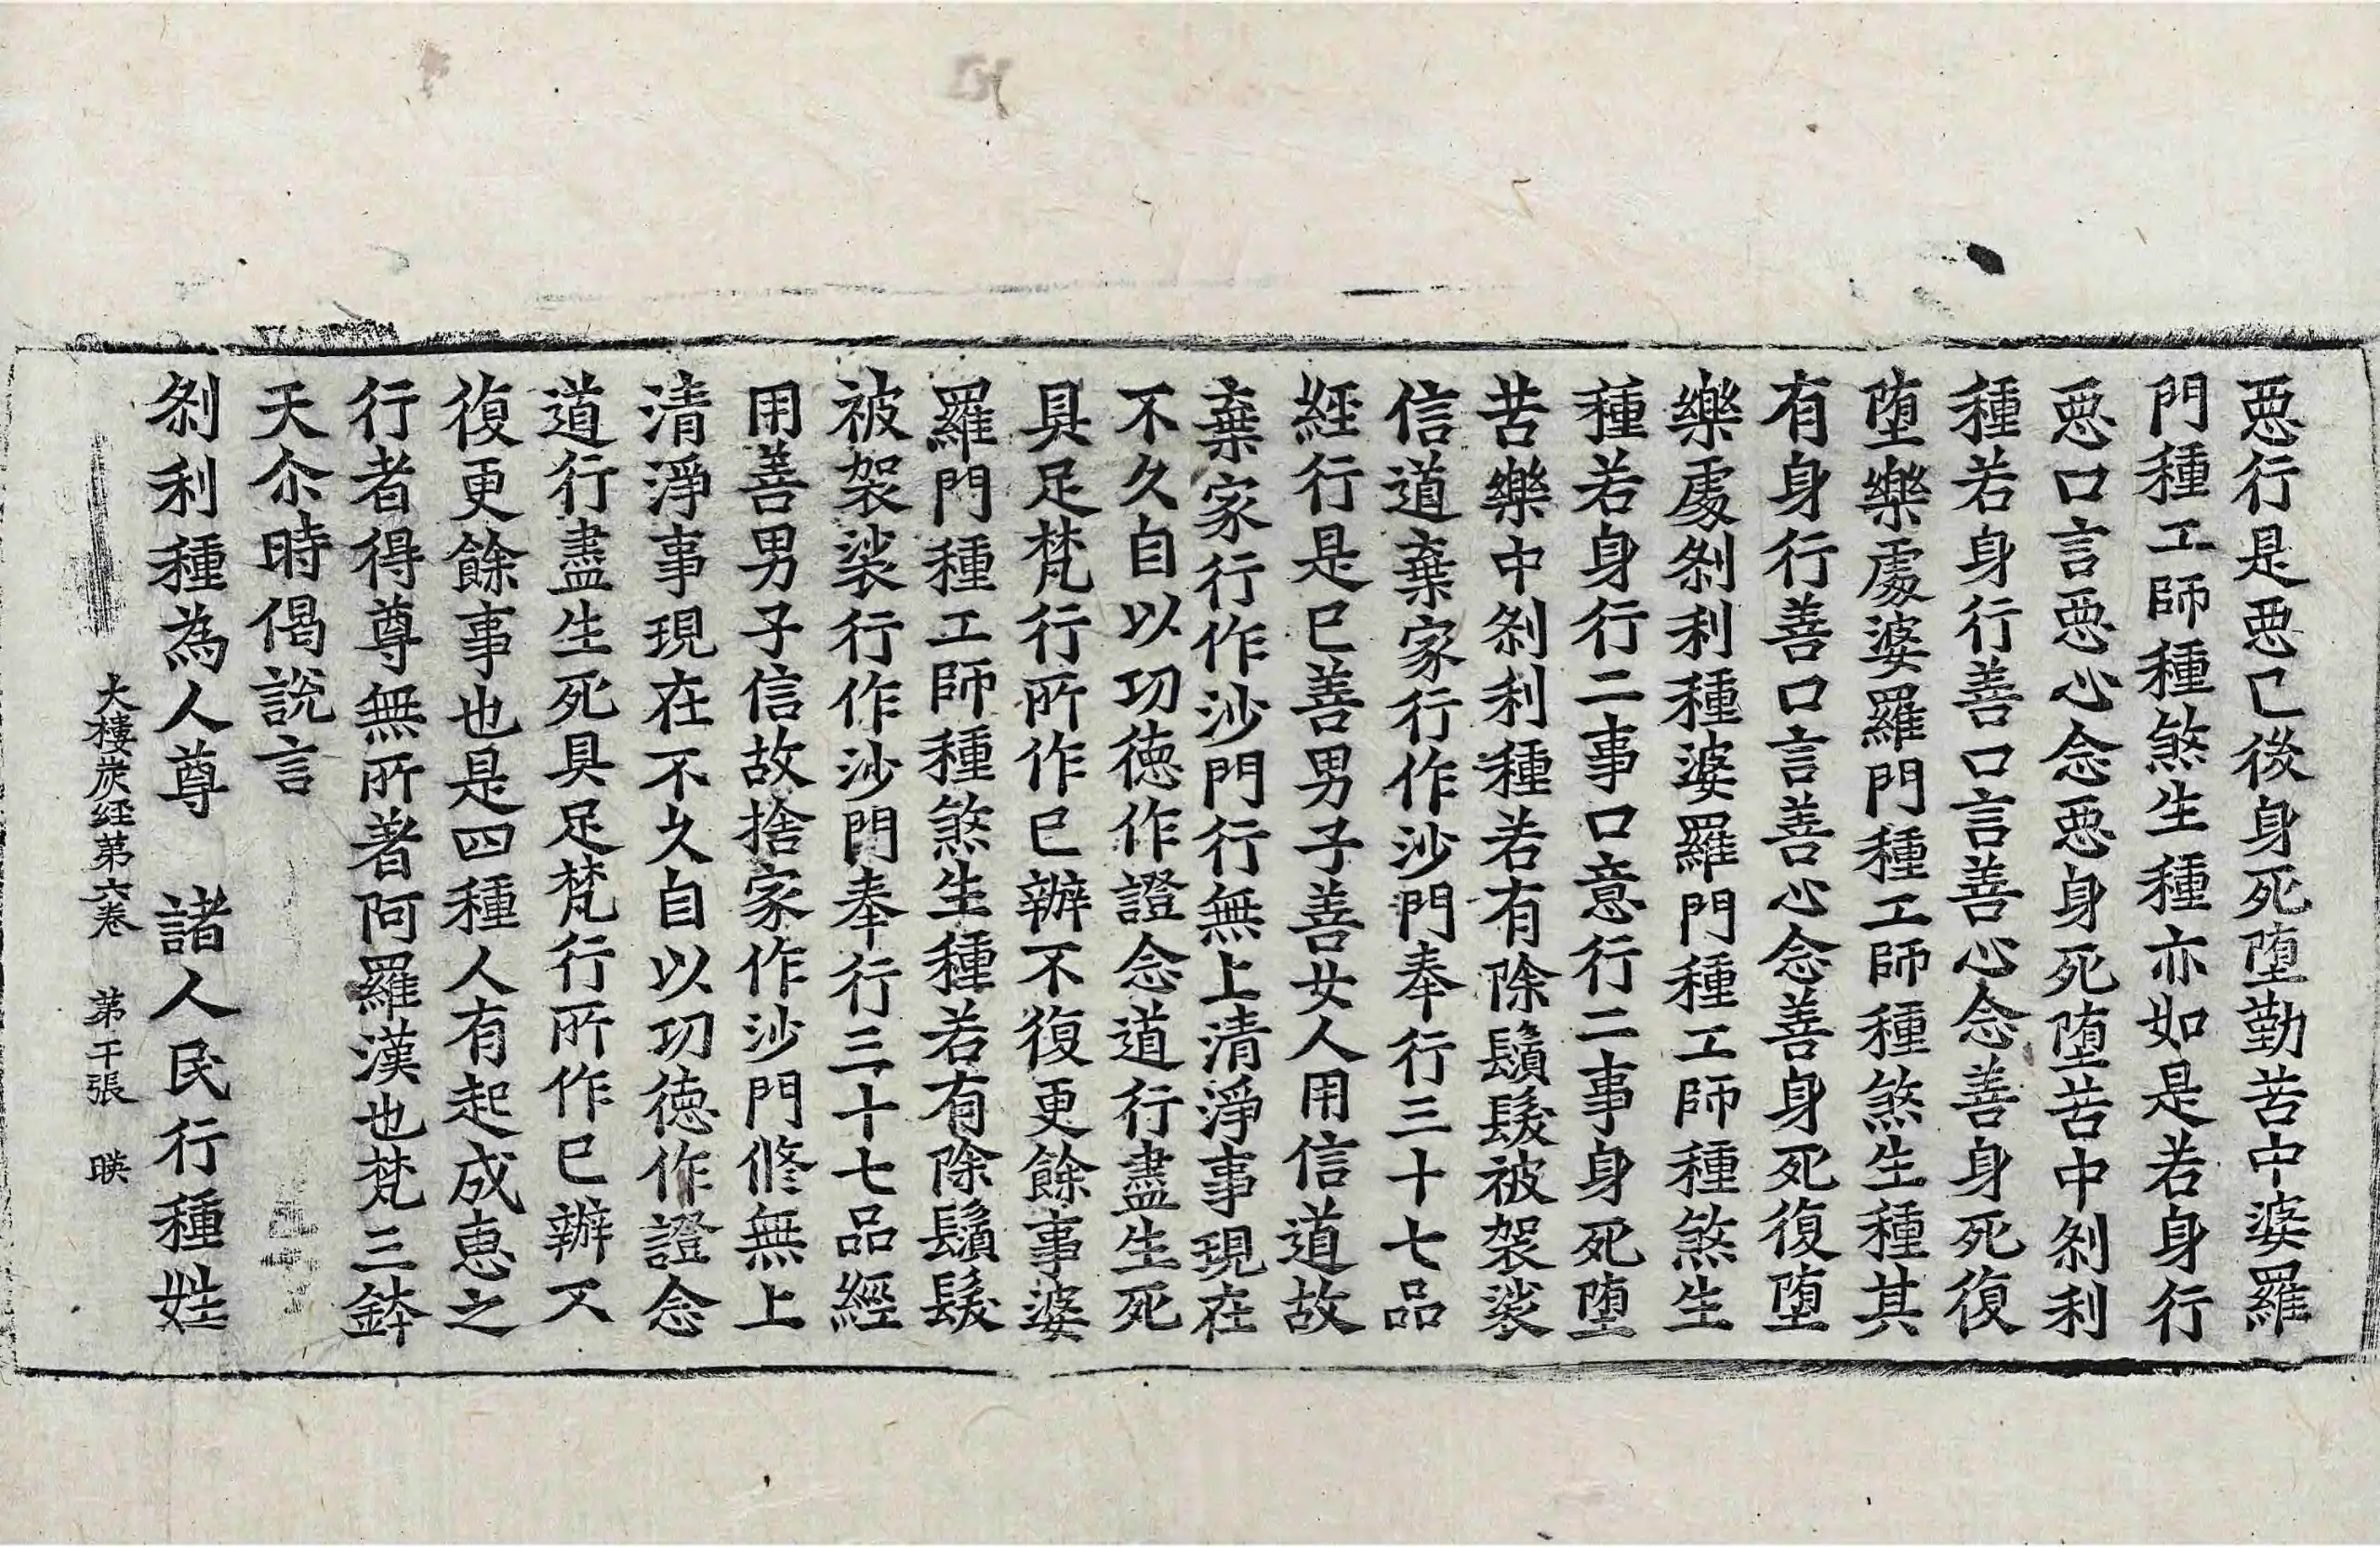 惡行是惡已後身死墮勤苦中婆羅
門種工師種煞生種亦如是若身行
惡口言惡心念惡身死墮苦中剎利
種若身行善口言善心念善身死復
墮樂處婆羅門種工師種煞生種其
有身行善口言善心念善身死復墮
樂處剎利種婆羅門種工師種煞生
種若身行二事口意行二事身死墮
苦樂中剎利種若有除鬚髮被袈裟
信道棄家行作沙門奉行三十七品
經行是已善男子善女人用信道故
棄家行作沙門行無上清淨事現在
不久自以功德作證念道行盡生死
具足梵行所作已辦不復更餘事婆
羅門種工師種煞生種若有除鬚髮
被袈裟行作沙門奉行三十七品經
用善男子信故捨家作沙門修無上
清淨事現在不久自以功德作證念
道行盡生死具足梵行所作已辦不
復更餘事也是四種人有起成惠之
行者得尊無所著阿羅漢也梵三鉢
天尒時偈說言
剎利種為人尊　諸人民行種姓
大樓炭経第六卷　第干張　暎